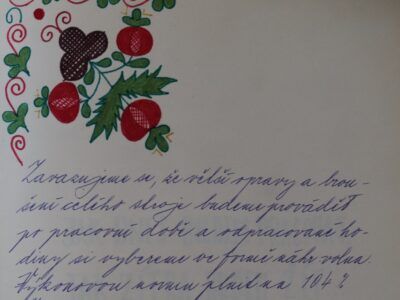 Zavazujeme se, že větší opravy a brou-
šení celého stroje budeme provádět
po pracovní době a odpracované ho-
diny si vybereme ve formě náhr. volna.
Výkonovou normu plnit na 104 %